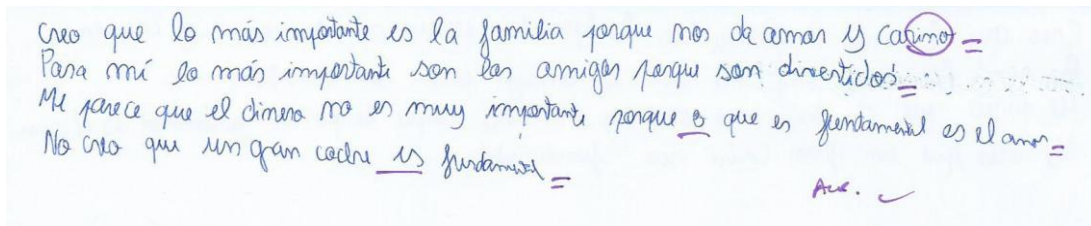 Creo que lo más importante es la familia porque nos da amor y carino =
Para mí lo más importante son los amigos porque son divertidos =
Me parece que el dinero no es muy importante porque o que es fundamental es el amor =
No creo que un gran coche es fundamental =